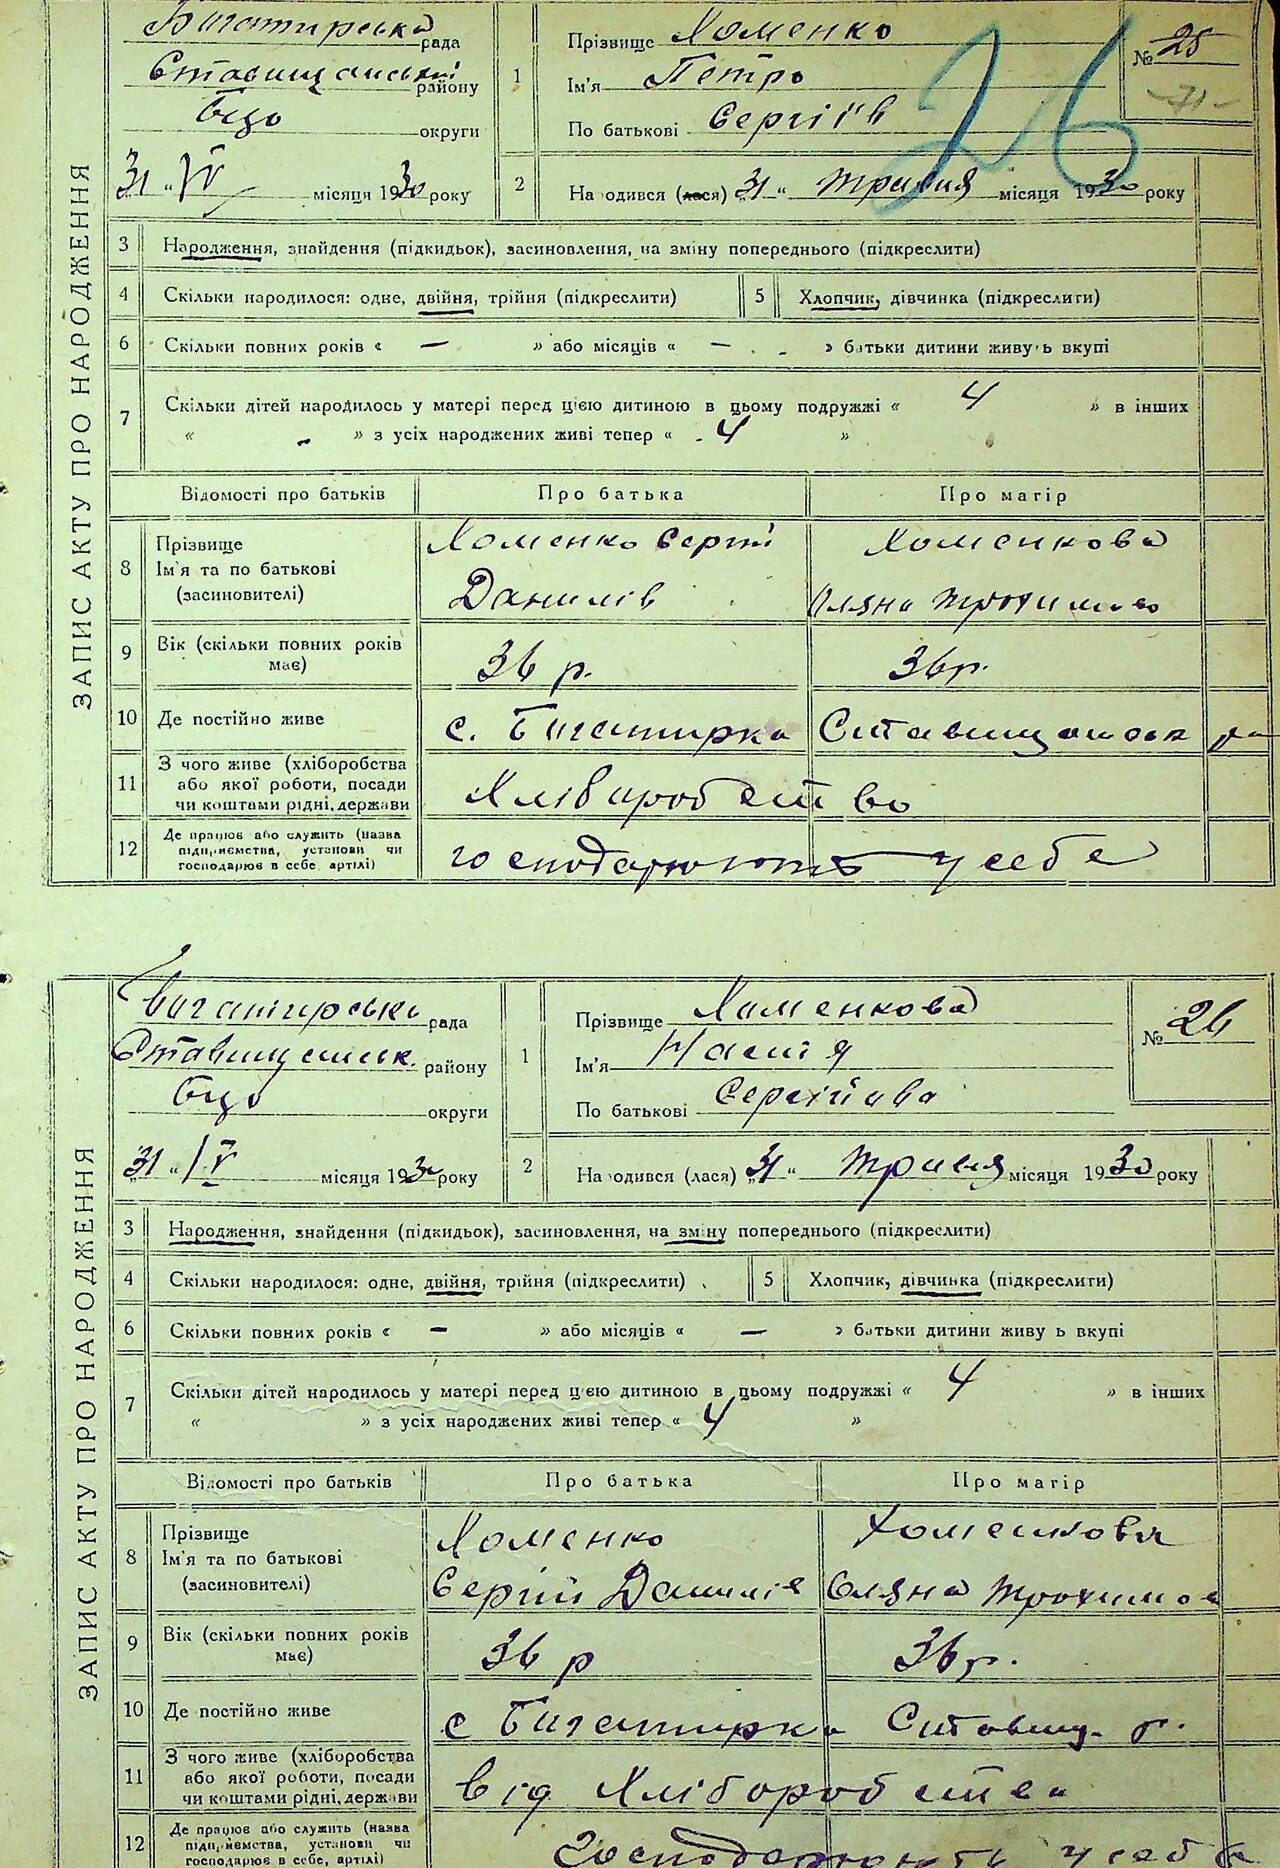 ЗАПИС АКТУ ПРО НАРОДЖЕННЯ
Багатирська рада
Ставищанський району
Бцо округи
31 " V місяця 1930 року
1 Прізвище Хоменко
Ім'я Петро
По батькові Сергіїв
№ 25
71
26
2 Народився (лася) 31 " травня місяця 1930 року
3 Народження, знайдення (підкидьок), засиновлення, на зміну попереднього (підкреслити)
4 Скільки народилося: одне, двійня, трійня (підкреслити) 5 Хлопчик, дівчинка (підкреслити)
6 Скільки повних років « — » або місяців « — » батьки дитини живуть вкупі
7 Скільки дітей народилось у матері перед цією дитиною в цьому подружжі « 4 » в інших
« - » з усіх народжених живі тепер « 4 »
Відомості про батьків Про батька Про матір
8 Прізвище Ім'я та по батькові (засиновителі) Хоменко Сергій Данилів Хоменкова Оляна Трохимова
9 Вік (скільки повних років має) 36 р. 36 р.
10 Де постійно живе с. Багатирка Ставищанськ ра
11 З чого живе (хліборобства або якої роботи, посади чи коштами рідні, держави Хліборобство
12 Де працює або служить (назва підприємства, установи чи господарює в себе, артілі) господарюють у себе
ЗАПИС АКТУ ПРО НАРОДЖЕННЯ
Багатирська рада
Ставищанськ. району
Бцо округи
31 " V місяця 1930 року
1 Прізвище Хоменкова
Ім'я Настя
По батькові Сергіїва
№ 26
2 Народився (лася) 31 " травня місяця 1930 року
3 Народження, знайдення (підкидьок), засиновлення, на зміну попереднього (підкреслити)
4 Скільки народилося: одне, двійня, трійня (підкреслити) 5 Хлопчик, дівчинка (підкреслити)
6 Скільки повних років « — » або місяців « — » батьки дитини живуть вкупі
7 Скільки дітей народилось у матері перед цією дитиною в цьому подружжі « 4 » в інших
« » з усіх народжених живі тепер « 4 »
Відомості про батьків Про батька Про матір
8 Прізвище Ім'я та по батькові (засиновителі) Хоменко Сергій Данилів Хоменкова Оляна Трохимов
9 Вік (скільки повних років має) 36 р 36 р.
10 Де постійно живе с Багатирка Ставищ. р.
11 З чого живе (хліборобства або якої роботи, посади чи коштами рідні, держави від Хліборобства
12 Де працює або служить (назва підприємства, установи чи господарює в себе, артілі) Господарюють у себе